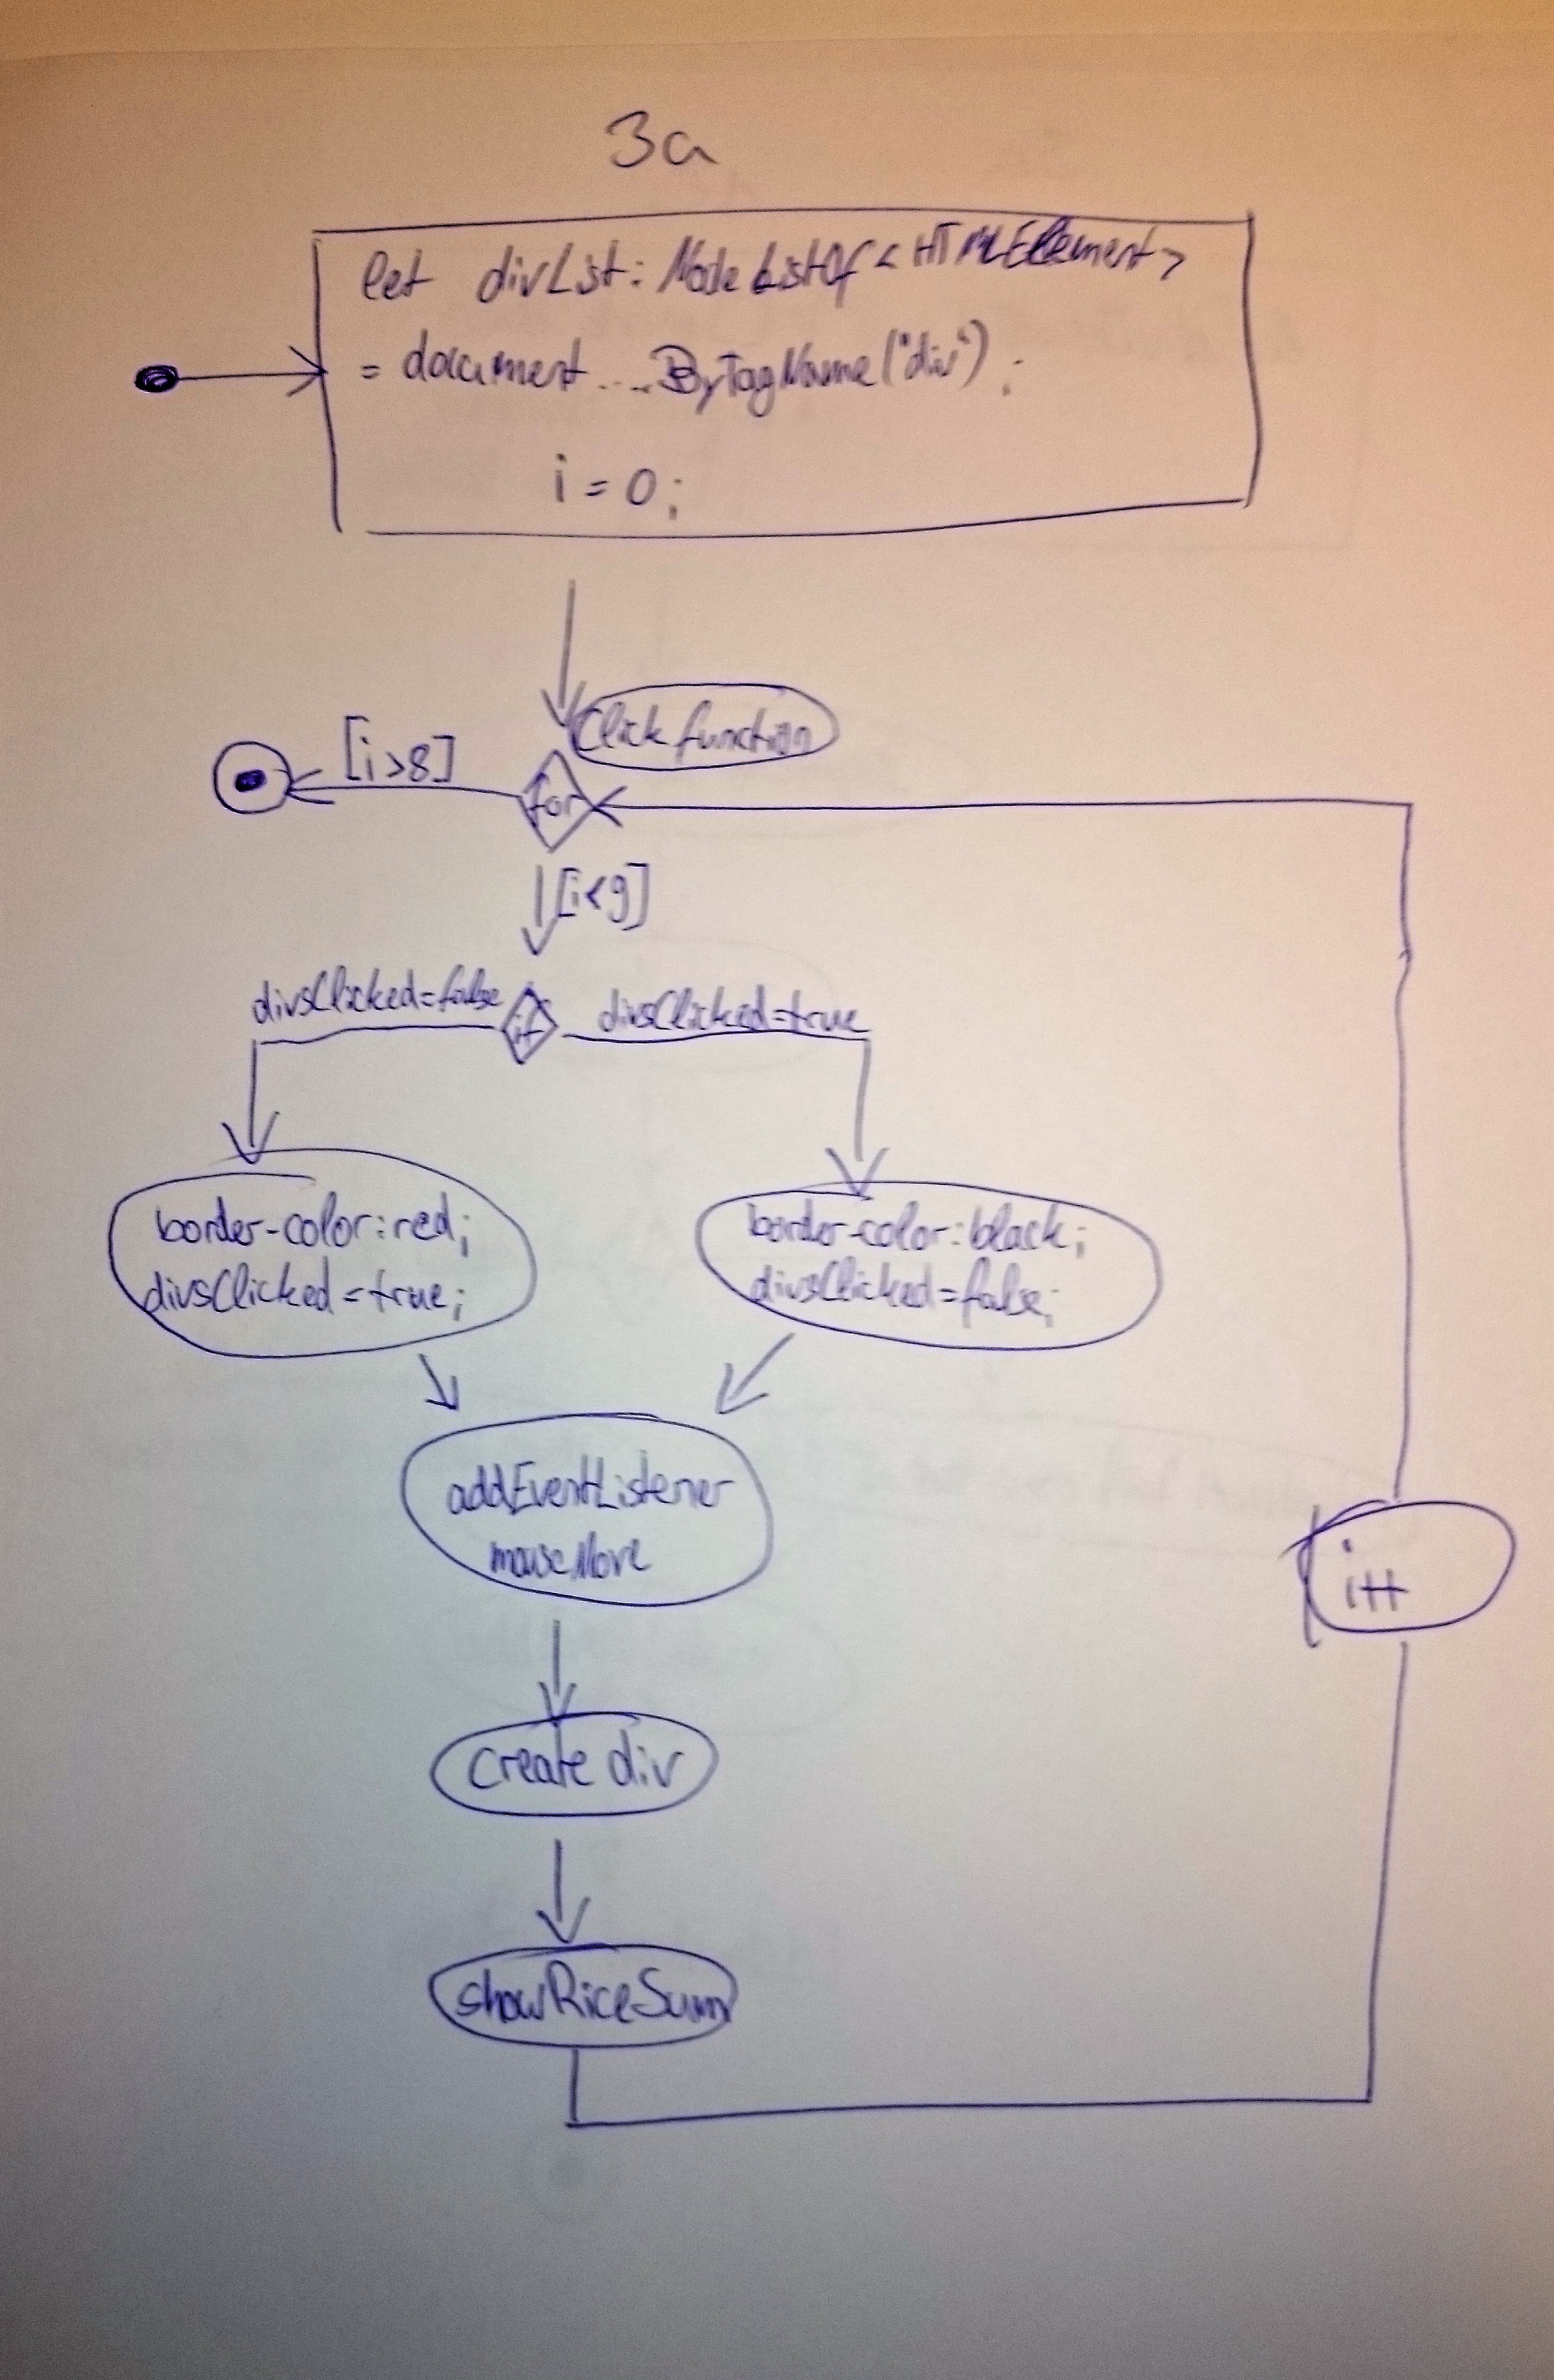 3a
let divList: NodeListOf<HTMLElement>
= document....ByTagName('div');
i = 0;
Clickfunction
[i>8]
for
[i<9]
divsClicked=false
if
divsClicked=true
border-color:red;
divsClicked=true;
border-color:black;
divsClicked=false;
addEventListener
mouseMove
i++
create div
showRiceSum